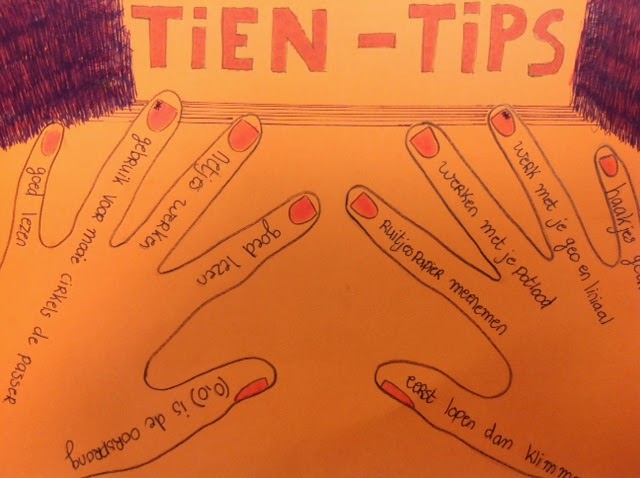 TiEN - TiPS
goed lezen
gebruik voor mooi cirkels de passer
Netjes werken
goed lezen
(0,0) is de oorsprong
eerst lopen dan klimm
Ruitjespapier meenemen
werken met je potlood
werk met je geo en liniaal
haakjes